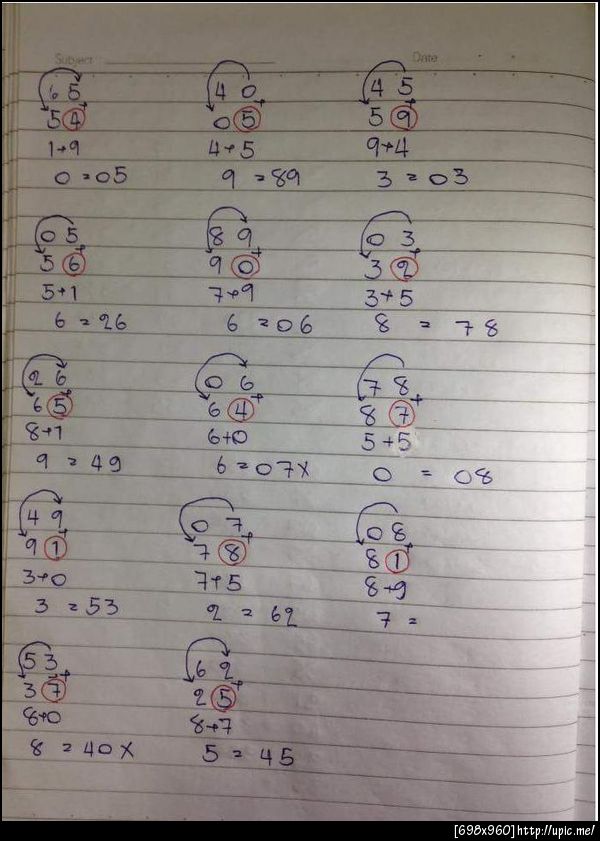 Subject Date
6 5 4 0 4 5
5 4 + 0 5 + 5 9 +
1+9 4+5 9+4
0 = 05 9 = 89 3 = 03
0 5 8 9 0 3
5 6 + 9 0 + 3 2 +
5+1 7+9 3+5
6 = 26 6 = 06 8 = 78
2 6 0 6 7 8
6 5 + 6 4 + 8 7 +
8+1 6+0 5+5
9 = 49 6 = 07 x 0 = 08
4 9 0 7 0 8
9 1 + 7 8 + 8 1 +
3+0 7+5 8+9
3 = 53 2 = 62 7 =
5 3 6 2
3 7 + 2 5 +
8+0 8+7
8 = 40 x 5 = 45
[698x960] http://upic.me/